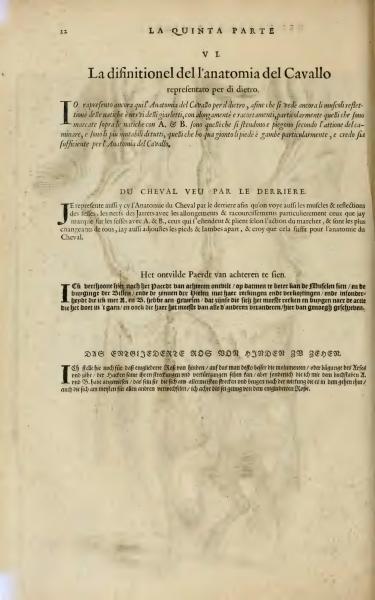 22 LA QUINTA PARTE
VI.
La difinitionel del l'anatomia del Cavallo
representato per di dietro.
IO representò ancora qui l'Anatomia del Cavallo per il dietro, afine che si vede ancora li musculi reflet-
tioni delle natiche è nervi delli giarletti, con alongamenti è racortamenti, particularmente quelli che sono
marcate sopra le natiche con A. & B. sono quelli che si stendono e piegono secondo l'attione del ca-
minare, e sono li più mutabili di tutti, quelli che ho qua gionto li piedè è gambè particularmente, e credo sia
sufficiente per l'Anatomia del Cavallo.
DU CHEVAL VEU PAR LE DERRIERE.
JE represente aussi y cy l'Anatomie du Cheval par le derriere afin qu'on voye aussi les muscles & reflections
des fesses, les nerfs des Jarrets avec les allongements & racourcissements particulierement ceux que jay
marque sur les fesses avec A. & B., ceux qui s'estendent & plient selon l'action du marcher, & sont les plus
changeants de tous, jay aussi adjoustes les pieds & Jambes apart, & croy que cela suffit pour l'anatomie du
Cheval.
Het ontvilde Paerdt van achteren te sien.
ICk verthoone hier noch het Paerdt van achteren ontvilt / op datmen te beter kan de Musculen sien / en de
buyginge der Billen / ende de zenuen der Hielen met haer reckingen ende verkortingen / ende insonder-
heydt die ick met A. en B. hebbe aen gewesen / dat zijnse die sich het meeste recken en buygen naer de actie
die het doet in 't gaen / en oock die haer het meeste van alle d'andere veranderen / hier van genoegh geschreven.
DAS ENTGLIEDERTE ROS VON HINDEN ZU SEHEN.
ICh stelle hie noch für das entgliederte Roß von hinden / auf das man desto besser die
und sihe / der Hacken samt ihren streckungen und verkürtzungen sehen kan / aber sonderlich die ich mit dem buchstaben A.
und B. habe angewiesen / das sein sie die sich am allermeisten strecken und beugen nach der wirkung die es in dem gehen thut /
auch die sich am meisten für allen andern verwechselen / ich achte dis sey genug von dem entgliederten Rosse.